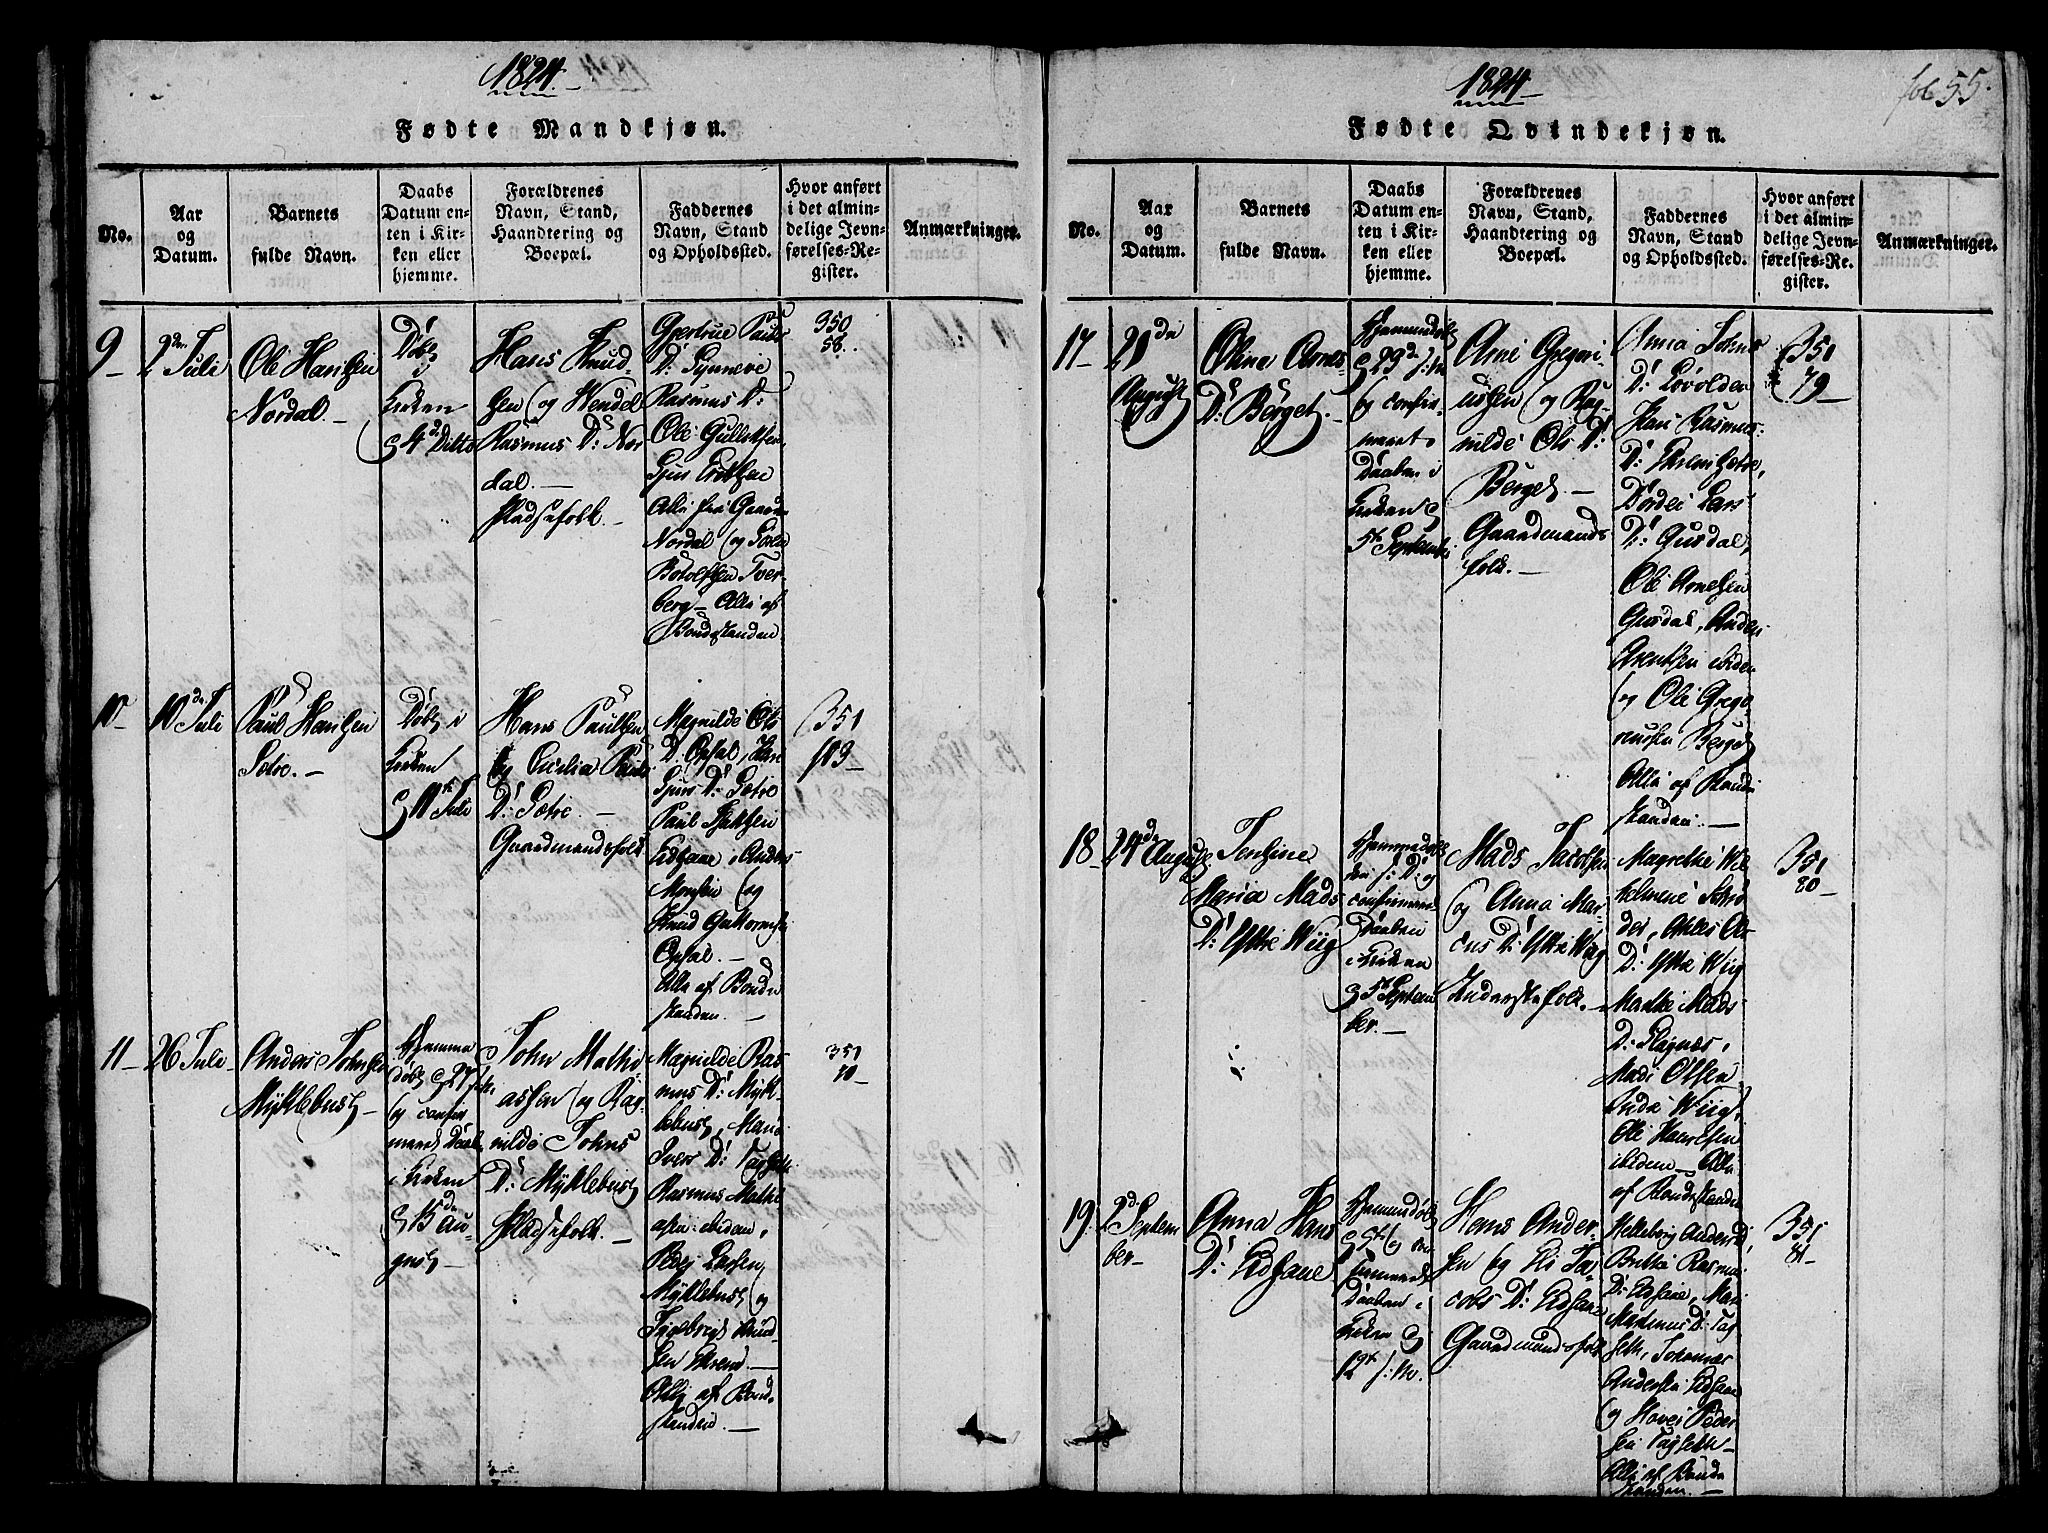 1824.
Fødte Mandkjøn.
No.
Aar
og
Datum.
Barnets
fulde Navn.
Daabs
Datum en-
ten i Kir-
ken eller
hjemme.
Forældrenes
Navn, Stand,
Haandtering og
Boepæl.
Faddernes
Navn, Stand
og Opholdssted.
Hvor anført
i det almin-
delige Jevn-
førelses-Re-
gister.
Anmærkninger.
9
2den Juli
Ole Hansen
Nordal.
Døbt
i
Kirken
d 4de Ditto
Hans Knud-
sen og Hendel
Rasmus D: Nor
dal.
Pladsefolk.
Gjertrue Pauls
D: Synneve
Rasmus D:
Ole Gulliksen
Sjurs Eriksen
Alle fra Gaarden
Nordal og
Botolfsen Tver-
berg - Alle af
Bondestanden
350
58.
10
10de Juli
Paul Hansen
Sætre.
Døbt i
Kirken
d 11te Juli
Hans Paulsen
og Cicilia Pauls
D: Sætre.
Gaardmandsfolk
Magnilde Ols
D: Opsal, Kari
Sjurs D: Sætre
Paul
Eidsaae, Anders
Monsen og
Knud Guttormsen
Opsal.
Alle af Bonde
standen.
351
103
11
26 Juli
Anders Johnsen
Myklebust
Hjemme
døbt d 27 Juli
og confir
meret Daaben
i Kirken
d 15de Au-
gust
John Mathi-
assen og Rag-
nilde Johns
D: Myklebust
Pladsefolk.
Magnilde Ras-
mus D: Mykl
lebust, Marie
Ivers D: Tagseth
Rasmus Mathi
asen ibidem,
Peder Larsen
Myklebust og
Ingebregt Knud-
sen Ekrem
Alle af Bonde-
standen.
351
10
1824
fol 55.
Fødte Qvindekjøn.
No.
Aar
og
Datum.
Barnets
fulde Navn.
Daabs
Datum en-
ten i Kir-
ken eller
hjemme.
Forældrenes
Navn, Stand,
Haandtering og
Boepæl.
Faddernes
Navn, Stand
og Opholdssted.
Hvor anført
i det almin-
delige Jevn-
førelses-Re-
gister.
Anmærkninger.
17
21de
August
Oline Arnes
D: Berget.
Hjemmedøbt
d 29de s: M
og confir-
meret
Daaben i
Kirken d
5te September
Arne Gregori-
ussen og Rag-
nilde Ols D:
Berget
Gaardmands
folk.
Anna Johns
D: Løvolden
Kari Rasmus-
D: Ekremsætre,
Dordei Lars
D: Gusdal,
Ole Arnesen
Gusdal, Anders
Arentsen ibidem
og Ole Grego-
riussen Berget
Alle af Bonde
standen.
351
79
18
24de August
Jensine
Maria Mads
D: Ystre Wiig
Hjemmedøbt
s: D: og
confirmeret
Daaben
i Kirken
d 5te Septem
ber.
Mads Jacobsen
og Anna Mar-
cus D: Ystre Wiig
Inderstefolk.
Magrethe Wil
helmene Schrø
der, Ols
D: Ystre Wiig
Marthe Mads
D: Flagnæs,
Mads Olsen
Indre Wiig,
Ole Hansen
ibidem Alle
af Bondestanden
351
80
19.
2de Septem
ber
Anna Hans
D: Eidsaae
Hjemmedøbt
d 5te og con
firmeret
Daaben i
Kirken d
12te s: M.
Hans Ander-
sen og Eli Ja-
cobs D: Eidsaae
Gaardmandsfolk
Helleborg Anders D,
Britha Rasmus
D: Eidsaae, Mari
Martinus D: Tag-
seth, Johannes
Andersen Eidsaae
og Peder
sen Tagseth
Alle af Bonde
standen.
351
81